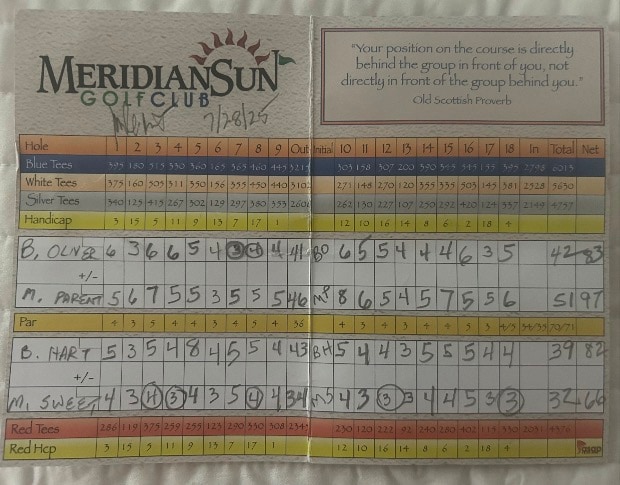 MERIDIANSUN
GOLFCLUB
7/28/25
"Your position on the course is directly
behind the group in front of you, not
directly in front of the group behind you."
Old Scottish Proverb
Hole 1 2 3 4 5 6 7 8 9 Out Initial 10 11 12 13 14 15 16 17 18 In Total Net
Blue Tees 395 180 515 330 360 165 365 460 445 3215 303 158 307 200 390 345 545 155 395 2798 6013
White Tees 375 160 505 311 350 156 355 450 440 3102 271 148 270 120 355 335 503 145 381 2528 5630
Silver Tees 340 125 415 267 302 129 297 380 353 2608 262 130 227 107 250 292 420 124 337 2149 4757
Handicap 3 15 5 11 9 13 7 17 1 12 10 16 14 8 6 2 18 4
B. OLNER 6 3 6 6 5 4 3 4 4 41 BO 6 5 5 4 4 4 6 3 5 42 83
+/-
M. PARENT 5 6 7 5 5 3 5 5 5 46 MP 8 6 5 4 5 7 5 5 6 51 97
Par 4 3 5 4 4 3 4 5 4 36 4 3 4 3 4 4 5 3 4/5 34/35 70/71
B. HART 5 3 5 4 8 4 5 5 4 43 BH 5 4 4 3 5 5 5 4 4 39 82
+/-
M. SWEET 4 3 4 3 4 3 5 4 4 34 MS 4 3 3 3 4 4 5 3 3 32 66
Red Tees 286 119 375 259 255 123 290 330 308 2345 230 120 222 92 240 280 402 115 330 2031 4376
Red Hcp 3 15 5 11 9 13 7 17 1 12 10 16 14 8 6 2 18 4